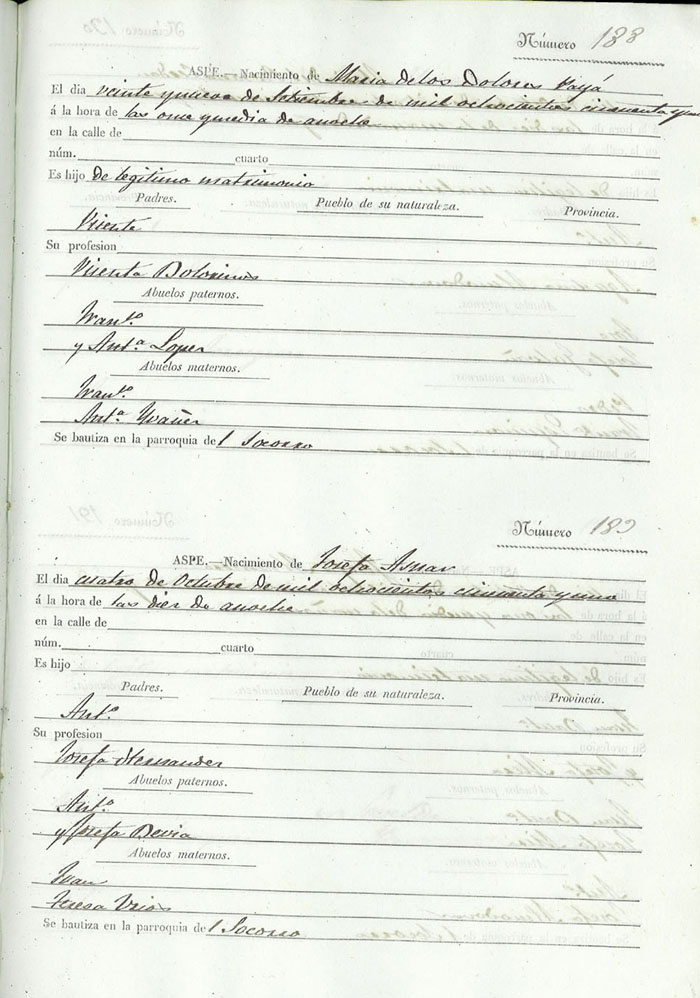 Número 188
ASPE.—Nacimiento de Maria de los Dolores Payá
El dia veinte y nueve de Setiembre de mil ochocientos cincuenta y uno
á la hora de las once y media de anoche
en la calle de
núm. cuarto
Es hijo de legitimo matrimonio
Padres. Pueblo de su naturaleza. Provincia.
Vicente
Su profesion
Vicenta Botorinos
Abuelos paternos.
y Ant.ª Lopez
Abuelos maternos.
Ant.ª Yvañez
Se bautiza en la parroquia de l Socorro
Número 189
ASPE.—Nacimiento de Josefa Asnar
El dia cuatro de Octubre de mil ochocientos cincuenta y uno
á la hora de las diez de anoche
en la calle de
núm. cuarto
Es hijo
Padres. Pueblo de su naturaleza. Provincia.
Ant.º
Su profesion
Josefa Hernandez
Abuelos paternos.
Ant.º
y Josefa Devia
Abuelos maternos.
Juan
Teresa Urios
Se bautiza en la parroquia de l Socorro